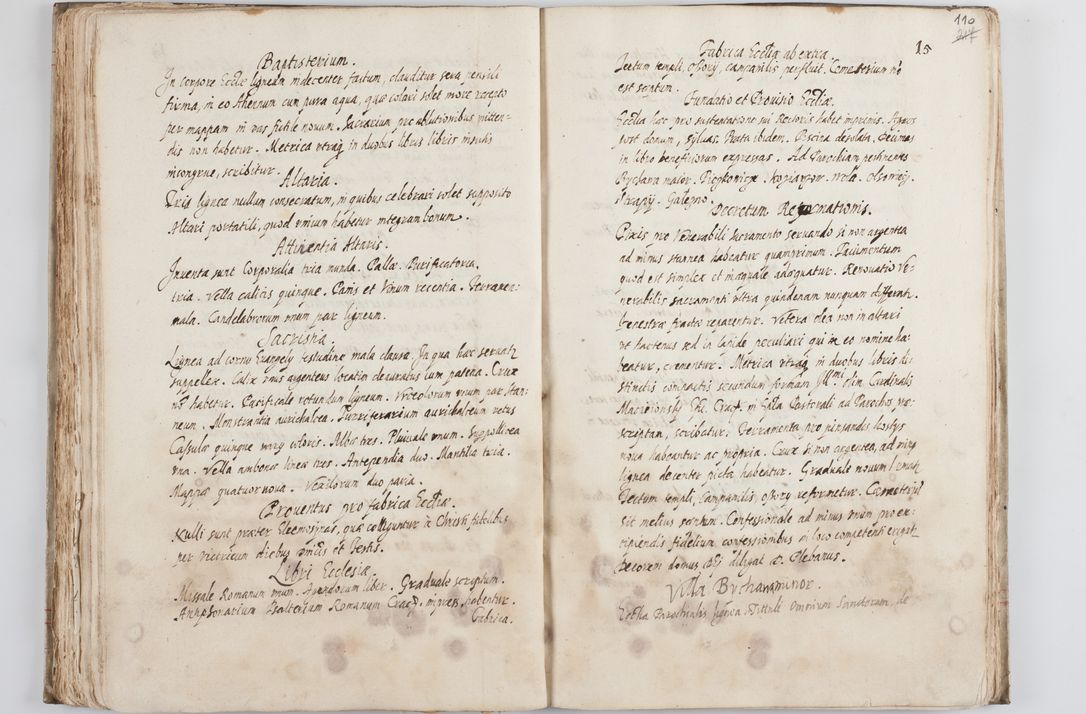 Baptisterium.
In corpore Eccl&#230; ligneum indecenter factum, clauditur sera pensili
firma, in eo Ahennum cum pura aqua, quæ colari solet more recepto
per mappam in vas fictile novum. Sacrarium pro ablutionibus mitten-
dis non habetur. Metrica vtraq in duobus libris libris insutis
incongrue, scribitur.
Altaria.
Tria lignea nullum consecratum, in quibus celebrari solet supposito
Altari portatili, quod vnicum habetur integrum bonum.
Attinentia Altaris.
Inventa sunt Corporalia tria munda. Pallæ. Purificatoria
tria. Vella calicis quinque. Panis et Vinum recentia. Ferramen:
mala. Candelabrorum vnum par ligneum.
Sacristia.
Lignea ad cornu Evangely testudine mala clausa. In qua hæc servatr
suppellex. Calix vnus argenteus locatim deauratus cum patena. Crux
nō habetur. Pacificale rotundum ligneum. Vrceolorum vnum par stan-
neum. Monstrantia aurichalcea. Turriferarium aurichalceum vetus
Casulæ quinque vary coloris. Albæ tres. Pluviale vnum. Suppellicea
vna. Vella ambonæ linea tres. Antependia duo. Mantilia tria.
Mappæ quatuor nova. Vexillorum duo paria.
Proventus pro fabrica Eccliæ.
Nulli sunt præter Eleemosynas, quæ colliguntur à Christi fidelibus
per vietricum diebus Dnicis et Festis.
Libri Ecclesiæ.
Missale Romanum vnum. Agendorum liber. Graduale scriptum.
Antiphonarium Psalterium Romanum Crac. impress. habentur.
Fabrica.
110
15
Fabrica Eccliæ ab extra.
Tectum templi, Ossory, campanilis perfluit. Cemeterium nō
est septum.
Fundatio et Provisio Eccliæ.
Ecclia hæc pro sustentatione sui Rectoris habet in primis. Agros
sort donum, syluas, Prata ibidem. Piscina desolata. Decimas
in libro beneficiorum expressas. Ad Parochiam pertinentes
Bychava maior.
Decretum Reformationis.
Pixis pro Venerabili Sacramento servando si non argentea
ad minus stannea habeatur quamprimum. Pacimentum
quod est simplex et inæquale adæquatur. Renovatio Ve-
nerabilis sacramenti vltra quindenam nunquam differatr.
Fenestræ fractæ reparentur. Vetera olea non in altari
vt hactenus sed in lapide peculiari qui in eo nomine ha-
beatur, crementur. Metrica vtraq in duobus libris di-
stinctis compactis secundum formam Illmi olim Cardinalis
Macieiowsky Epi. Crac. in Epla Pastorali ad Parochos præ-
scriptam, scribatur. Ferramenta pro pinsandis hostys
nova habeantur ac propria. Crux si non argentea, ad minus
lignea decenter picta habeatur. Graduale novum emat
Tectum templi, Campanilis, ossory reformetur. Cæmeterium
sit melius septum. Confessionale ad minus vnum pro ex-
cipiendis fidelium confessionibus in loco competenti erigatr
Decorem domus Dei diligat D. Plebanus.
Villa Bychawa minor.
Ecclia Parochialis lignea, Tituli Omnium Sanctorum, de